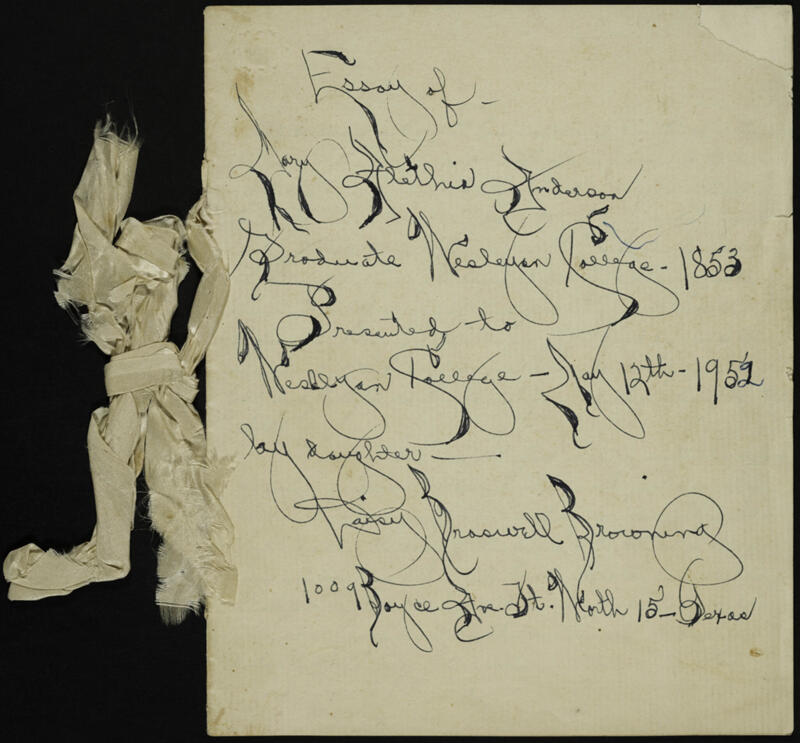 Essay of -
Mary Alethia Anderson
Graduate Wesleyan College - 1853
Presented to
Wesleyan College - May 12th - 1952
by daughter —
Daisy Braswell Browning
1009 Boyce Ave. Ft. Worth 15 - Texas